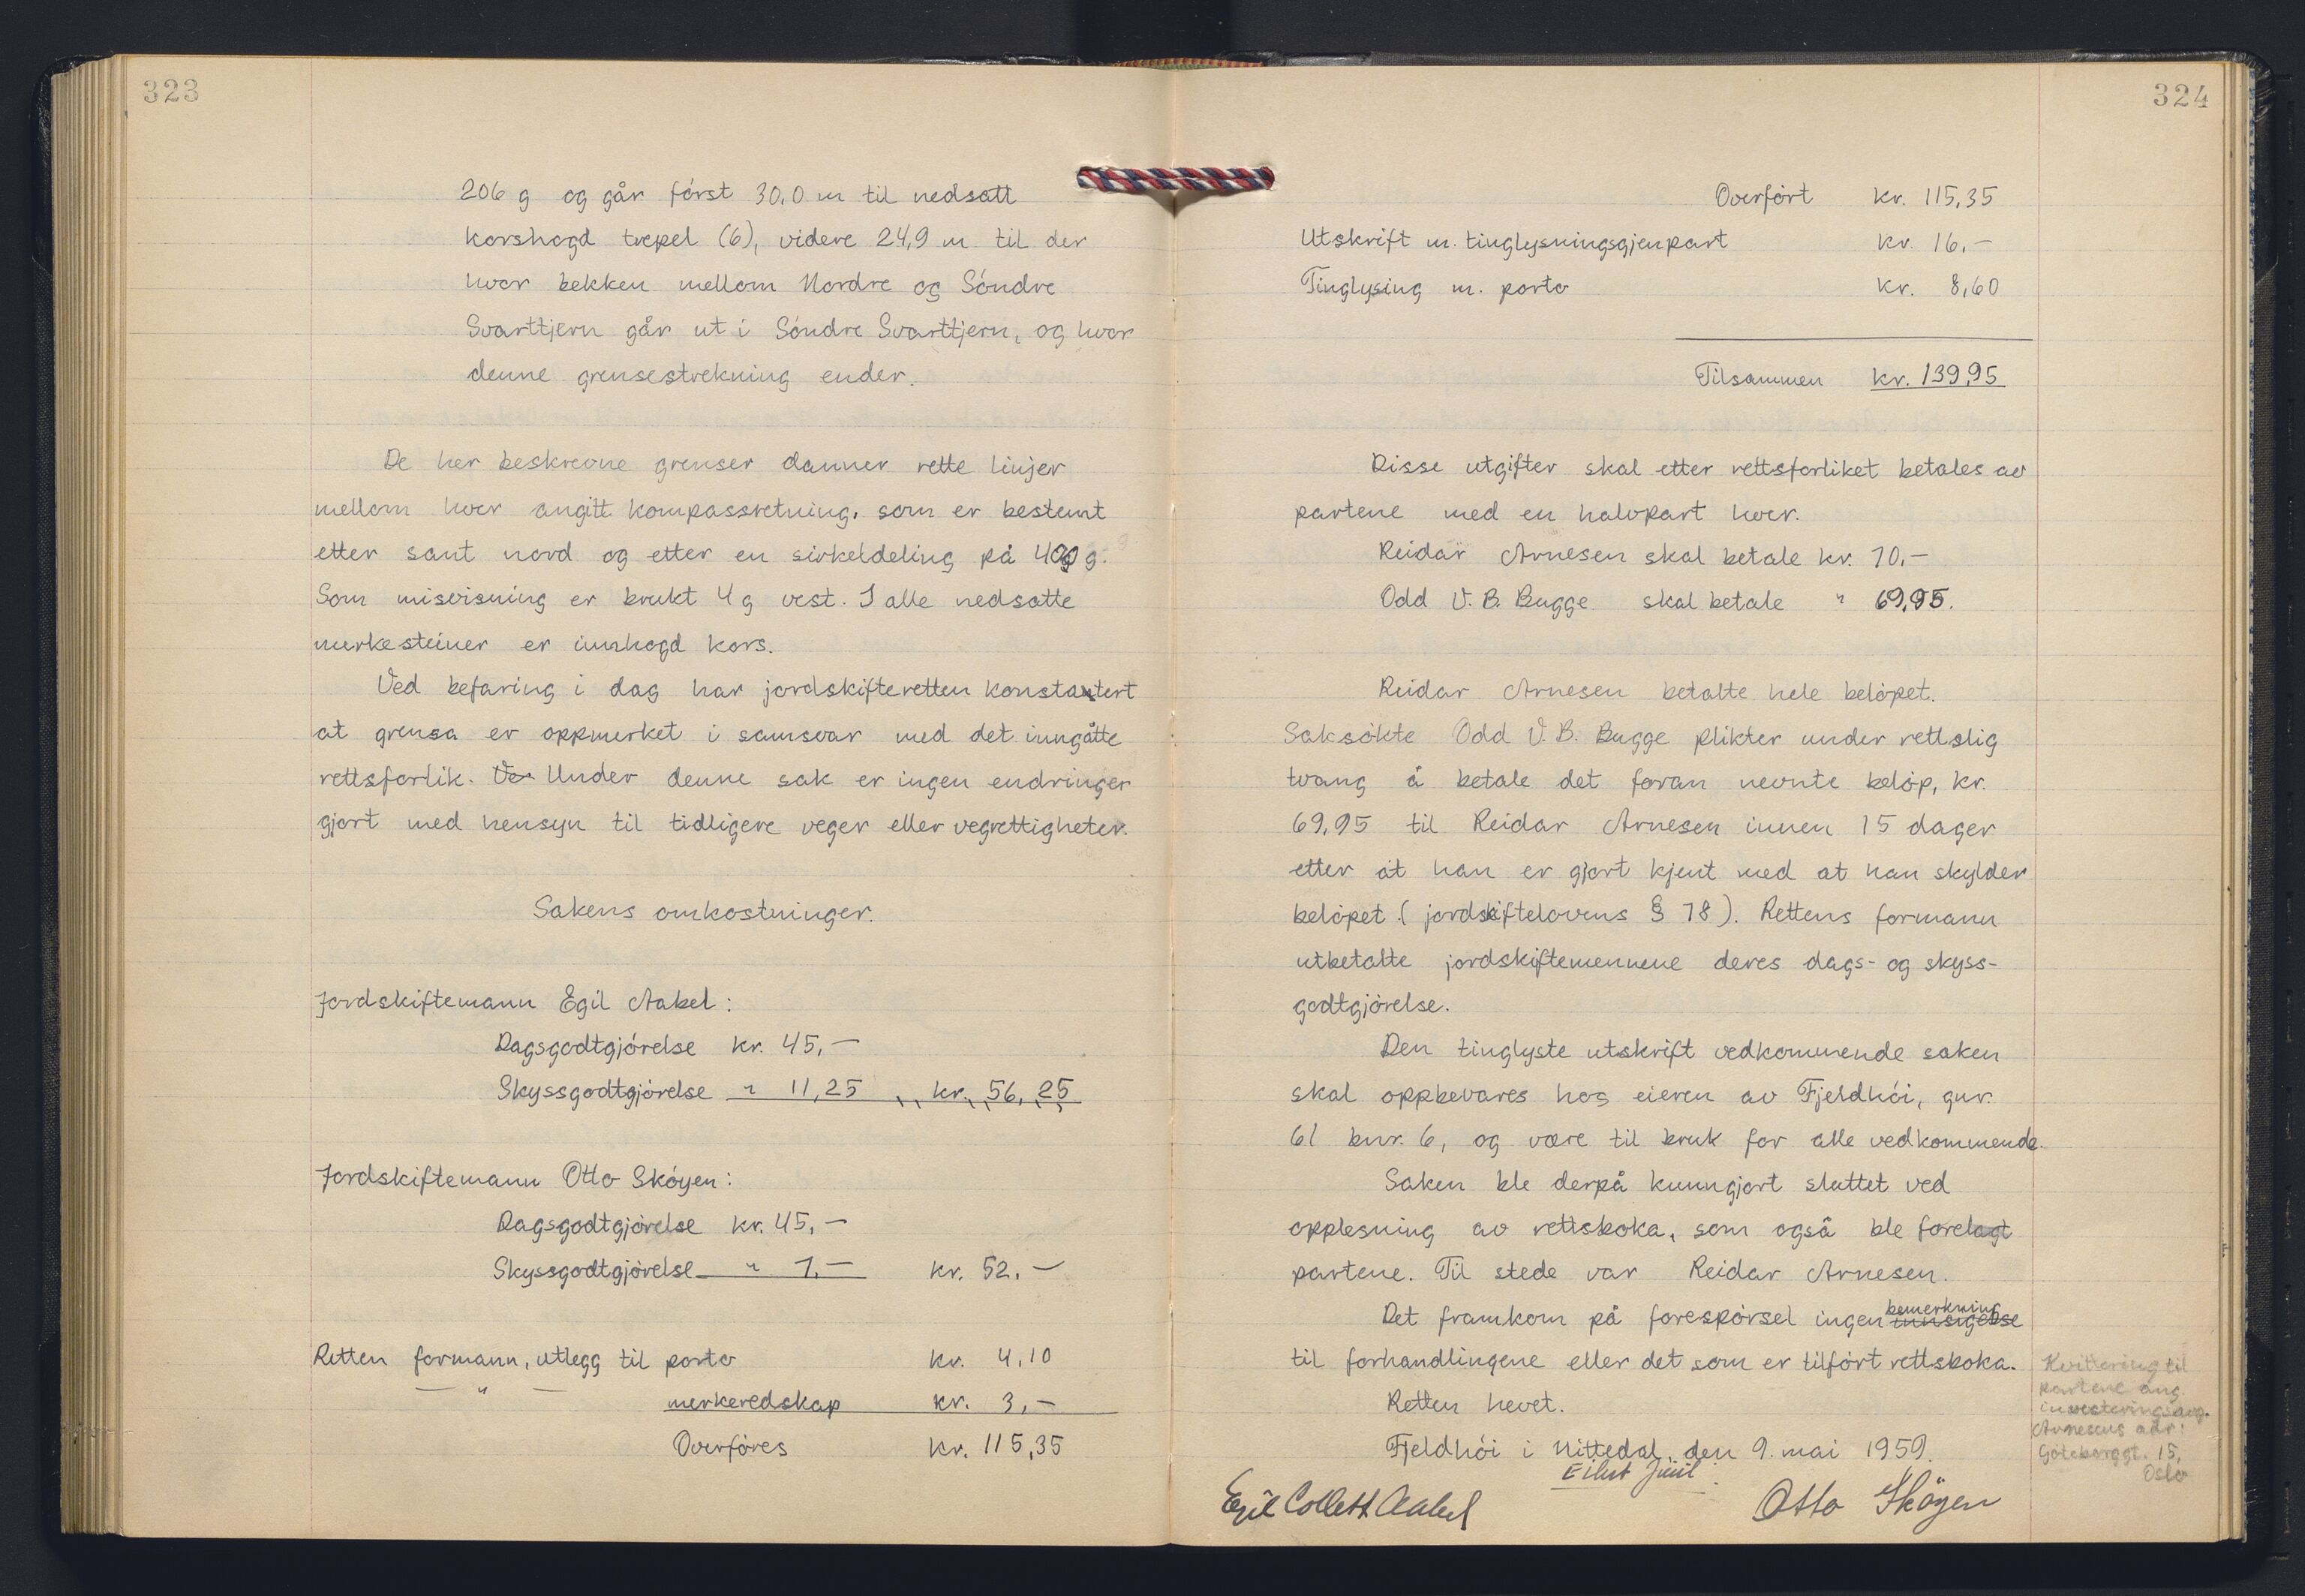 323
206 g og går först 30,0 m til nedsatt
korshogd trepel (6), videre 24,9 m til der
hvor bekken mellom Nordre og Söndre
Svarttjern går ut i Söndre Svarttjern, og hvor
denne grensestrekning ender.
De her beskrevne grenser danner rette linjer
mellom hver angitt kompassretning, som er bestemt
etter sant nord og etter en sirkeldeling på 400 g.
Som misvisning er brukt 4 g vest. I alle nedsatte
merkesteiner er innhogd kors.
Ved befaring i dag har jordskifteretten konstatert
at grensa er oppmerket i samsvar med det inngåtte
rettsforlik. Ve Under denne sak er ingen endringer
gjort med hensyn til tidligere veger eller vegrettigheter.
Sakens omkostninger.
Jordskiftemann Egil Aabel:
Dagsgodtgjörelse kr. 45,-
Skyssgodtgjörelse " 11,25 kr. 56,25
Jordskiftemann Otto Sköyen:
Dagsgodtgjörelse kr. 45,-
Skyssgodtgjörelse " 7,- kr. 52,-
Retten formann, utlegg til porto kr. 4,10
— " — merkeredskap kr. 3,-
Overföres kr. 115,35
324
Overfört kr. 115,35
Utskrift m. tinglysningsgjenpart kr. 16,-
Tinglysing m. porto kr. 8,60
Tilsammen kr. 139,95
Disse utgifter skal etter rettsforliket betales av
partene med en halvpart hver.
Reidar Arnesen skal betale kr. 70,-
Odd V. B. Bugge skal betale " 69,95.
Reidar Arnesen betalte hele belöpet.
Saksökte Odd V. B. Bugge plikter under rettslig
tvang å betale det foran nevnte belöp, kr.
69,95 til Reidar Arnesen innen 15 dager
etter at han er gjort kjent med at han skylder
belöpet (jordskiftelovens § 78). Rettens formann
utbetalte jordskiftemennene deres dags- og skyss-
godtgjörelse.
Den tinglyste utskrift vedkommende saken
skal oppbevares hos eieren av Fjeldhöi, gnr.
61 bnr. 6, og være til bruk for alle vedkommende.
Saken ble derpå kunngjort sluttet ved
opplesning av rettsboka, som også ble forelagt
partene. Til stede var Reidar Arnesen.
Det framkom på forespörsel ingen innsigelse bemerkning
til forhandlingene eller det som er tilfört rettsboka.
Retten hevet.
Fjeldhöi i Nittedal, den 9. mai 1959.
Eilert Juul
Egil Collett Aabel Otto Sköyen
Kvittering til
partene ang.
investeringsavg.
Arnesens adr:
Göteborggt. 15,
Oslo